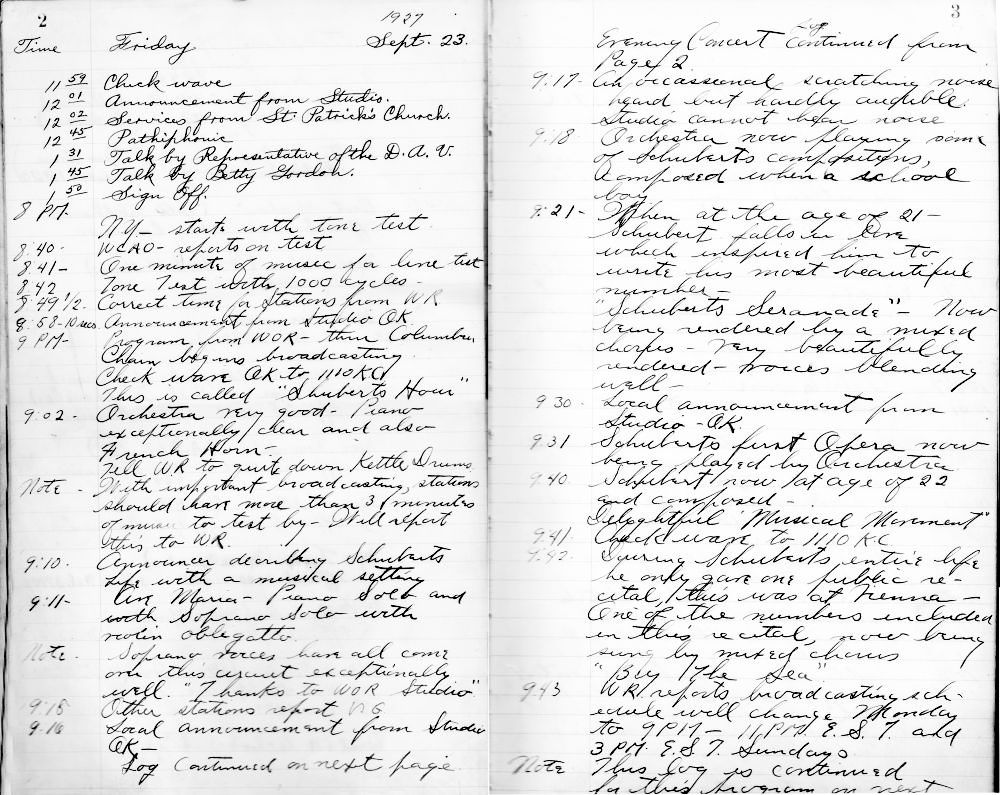 2
1927
Time Friday Sept. 23.
11 59 Check wave
12 01 Announcement from Studio.
12 02 Services from St. Patrick's Church.
12 45 Pathiphonic
1 31 Talk by Representative of the D. A. V.
1 45 Talk by Betty Gordon.
1 50 Sign Off.
8 PM.
NY- starts with tone test
8.40 - WCAO- reports on test
8.41- One minute of music for line test
8.42 Tone Test with 1000 cycles-
8 49 1/2. Correct time for stations from WR
8:58-10 secs. Announcement from Studio OK
9 PM- Program from WOR- thru Columbus
Chain begins broadcasting.
Check wave OK to 1110 KC
This is called "Shuberts Hour"
9:02 - Orchestra very good- Piano
exceptionally clear and also
French Horn-
Tell WR to quiet down Kettle Drums
Note - With important broadcasting, stations
should have more than 3 minutes
of music to test by- Will report
this to WR.
9:10. Announcer describing Schuberts
life with a musical setting
9:11- Ave Maria- Piano Solo and
with Soprano Solo with
violin obligatto.
Note. Soprano voices have all come
over this circuit exceptionally
well. "Thanks to WOR Studio"
9:15 Other stations report
9:16 Local announcement from Studio
OK-
Log Continued on next page.
3
Log
Evening Concert continued from
Page 2
9.17- An occassional scratching noise
heard but hardly audible.
Studio cannot hear noise
9:18 Orchestra now playing some
of Schuberts compositions,
composed when a school
boy.
9:21- When at the age of 21-
Schubert falls in love
which inspired him to
write his most beautiful
number-
"Schuberts Seranade"- Now
being rendered by a mixed
chorus- Very beautifully
rendered- voices blending
well-
9 30 - Local announcement from
Studio-OK.
9.31 Schuberts first Opera now
being played by Orchestra
9.40. Schubert now at age of 22
and composed-
Delightful "Musical Movement"
9:41. Check wave to 1110 KC
9:42. During Schuberts entire life
he only gave one public re-
cital, this was at Vienna-
One of the numbers included
in this recital, now being
sung by mixed chorus
"By The Sea"
9.43 WR. reports broadcasting sch-
edule will change Monday
to 9 PM- 11 PM. E. S. T. and
3 PM. E. S. T. Sundays.
Note This log is continued
for this program on next